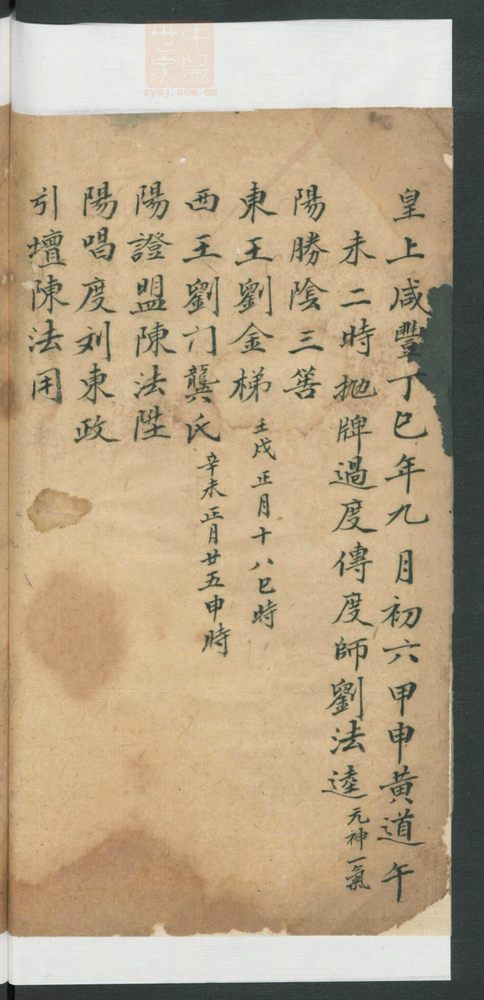 皇上咸豐丁巳年九月初六甲申黃道午
未二時抛牌過度傳度師劉法逵元神一氣
陽勝陰三筶
東王劉金梯壬戌正月十八巳時
西王劉门龔氏辛未正月廿五申時
陽證盟陳法陞
陽唱度刘東政
引壇陳法用
中醫世家
zysj.com.cn